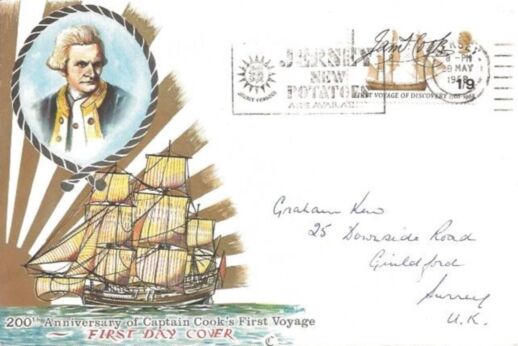 JERSEY
NEW
POTATOES
ARE AVAILABLE
Jam.s Cook
JERSEY
8 - PM
29 MAY
1968
1/9
FIRST VOYAGE OF DISCOVERY 1768-1968
Graham Kew
25 Downside Road
Guildford
Surrey
U.K.
200th Anniversary of Captain Cook's First Voyage
FIRST DAY COVER